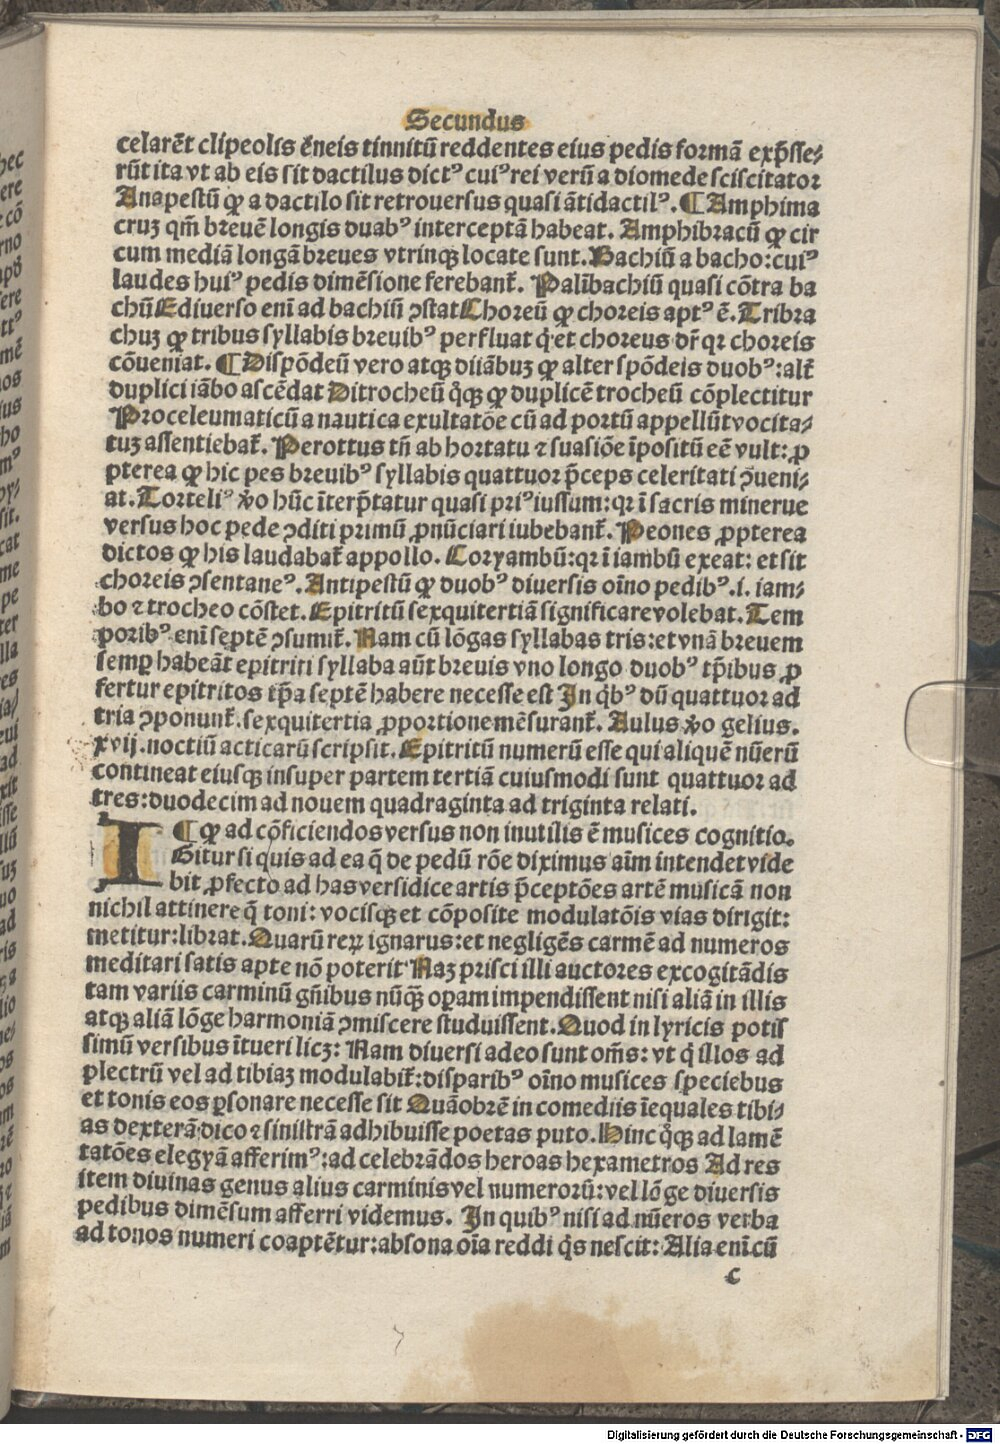 Secundus
celarēt clipeolis ēneis tinnitū reddentes eius pedis formā exp̄sse⸗
rūt ita vt ab eis sit dactilus dictꝰ cuiꝰ rei verū a diomede sciscitator
Anapestū ꝙ a dactilo sit retrouersus quasi ātidactilꝰ. ¶ Amphima
cruꝫ qm̄ breuē longis duabꝰ interceptā habeat. Amphibracū ꝙ cir
cum mediā longā breues vtrinqꝫ locate sunt. Bachiū a bacho: cuiꝰ
laudes huiꝰ pedis dimēsione ferebant᷑. Palībachiū quasi cōtra ba
chū Ediuerso enī ad bachiū ꝯstat Choreū ꝙ choreis aptꝰ ē. Tribra
chuꝫ ꝙ tribus syllabis breuibꝰ perfluat q̇ et choreus dr̄ qꝛ choreis
cōueniat. ¶ Dispōdeū vero atqꝫ diiābuꝫ ꝙ alter spōdeis duobꝰ: alt᷑
duplici iābo ascēdat Ditrocheū q̊qꝫ ꝙ duplicē trocheū cōplectitur
Proceleumaticū a nautica exultatōe cū ad portū appellūt vocita⸗
tuꝫ assentiebat᷑. Perottus tn̄ ab hortatu ⁊ suasiōe īpositū eē vult: ꝓ
pterea ꝙ hic pes breuibꝰ syllabis quattuor p̄ceps celeritati ꝯueni⸗
at. Torteliꝰ v̊o hūc īterp̄tatur quasi priꝰ iussum: qꝛ ī sacris minerue
versus hoc pede ꝯditi primū ꝓnūciari iubebant᷑. Peones ꝓpterea
dictos ꝙ his laudabat᷑ appollo. Coryambū: qꝛ ī iambū exeat: et sit
choreis ꝯsentaneꝰ. Antipestū ꝙ duobꝰ diuersis oīno pedibꝰ. i. iam⸗
bo ⁊ trocheo cōstet. Epitritū sexquitertiā significare volebat. Tem
poribꝰ enī septē ꝯsumit᷑. Nam cū lōgas syllabas tris: et vnā breuem
semꝑ habeāt epitriti syllaba aūt breuis vno longo duobꝰ tp̄ibus ꝓ
fertur epitritos tp̄a septē habere necesse est In q̇bꝰ dū quattuor ad
tria ꝯponunt᷑. sexquitertia ꝓportione mēsurant᷑. Aulus v̊o gelius.
xvij. noctiū acticarū scripsit. Epitritū numerū esse qui aliquē nūerū
contineat eiusqꝫ insuper partem tertiā cuiusmodi sunt quattuor ad
tres: duodecim ad nouem quadraginta ad triginta relati.
¶ ꝙ ad cōficiendos versus non inutilis ē musices cognitio.
IGitur si quis ad ea q̄ de pedū rōe diximus aīm intendet vide
bit ꝓfecto ad has versidice artis p̄ceptōes artē musicā non
nichil attinere q̄ toni: vocisqꝫ et cōposite modulatōis vias dirigit:
metitur: librat. Quarū reꝝ ignarus: et negligēs carmē ad numeros
meditari satis apte nō poterit Naꝫ prisci illi auctores excogitādis
tam variis carminū gn̄ibus nūqꝫ̄ oꝑam impendissent nisi aliā in illis
atqꝫ aliā lōge harmoniā ꝯmiscere studuissent. Quod in lyricis potis
simū versibus ītueri licꝫ: Nam diuersi adeo sunt om̄s: vt q̇ illos ad
plectrū vel ad tibiaꝫ modulabit᷑: disparibꝰ oīno musices speciebus
et tonis eos ꝑsonare necesse sit Quāobrē in comediis īequales tibi⸗
as dexterā dico ⁊ sinistrā adhibuisse poetas puto. Hinc q̊qꝫ ad lamē
tatōes elegyā afferimꝰ: ad celebrādos heroas hexametros Ad res
item diuinas genus alius carminis vel numerorū: vel lōge diuersis
pedibus dimēsum afferri videmus. In quibꝰ nisi ad nūeros verba
ad tonos numeri coaptētur: absona oīa reddi q̇s nescit: Alia enī cū
c
Digitalisierung gefördert durch die Deutsche Forschungsgemeinschaft - DFG